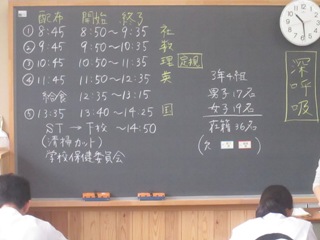 配布 開始 終了
① 8:45 8:50～9:35 社
② 9:45 9:50～10:35 数
③ 10:45 10:50～11:35 理 定規
④ 11:45 11:50～12:35 英
給食 12:35～13:15
⑤ 13:35 13:40～14:25 国
ST → 下校 ～14:50
(清掃カット)
学校保健委員会
3年4組
男子 17名
女子 19名
在籍 36名
深呼吸